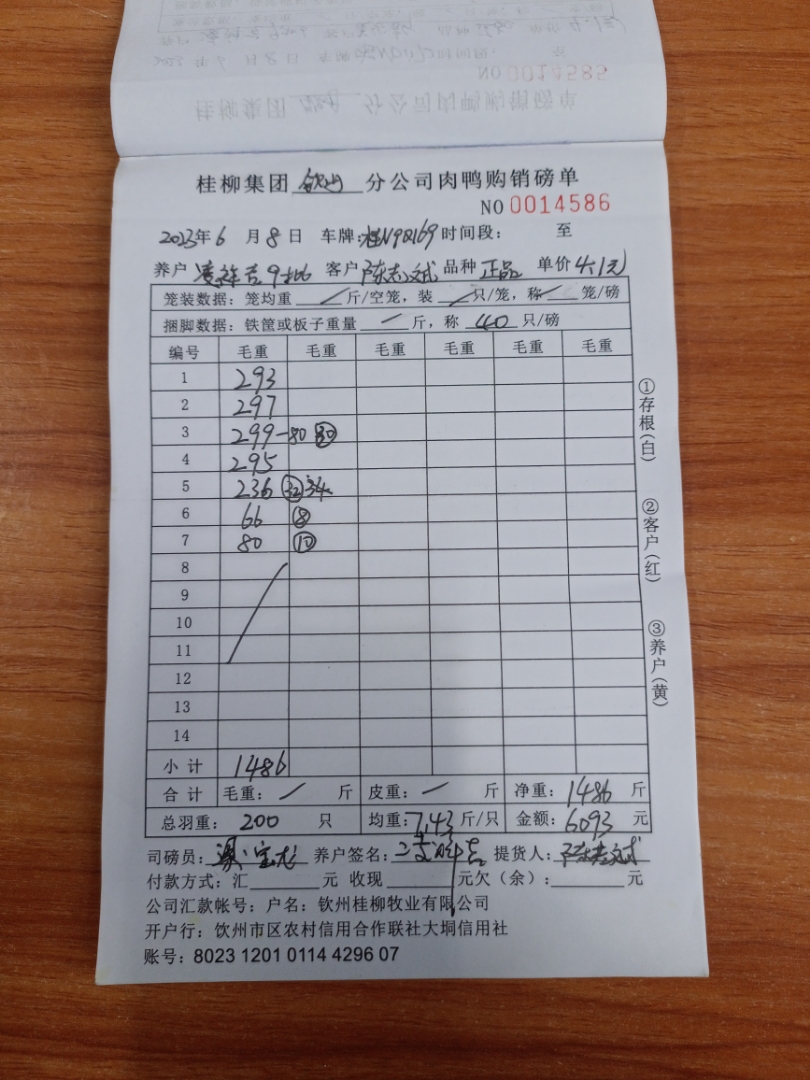 NO 0014585
桂柳集团 钦州 分公司肉鸭购销磅单
NO 0014586
2023年6月8日 车牌: 时间段: 至
养户 客户 陈志斌 品种 正品 单价 4.1元
笼装数据：笼均重 / 斤/空笼，装 / 只/笼，称 / 笼/磅
捆脚数据：铁筐或板子重量 / 斤，称 40 只/磅
编号 毛重 毛重 毛重 毛重 毛重 毛重
1 293
2 297
3 299-80 30
4 295
5 236 32
6 66 8
7 80 10
8
9
10
11
12
13
14
小计 1486
合计 毛重: / 斤 皮重: / 斤 净重: 1486 斤
总羽重: 200 只 均重: 7.43 斤/只 金额: 6093 元
司磅员: 养户签名: 提货人: 陈志斌
付款方式：汇 元 收现 元欠（余）: 元
公司汇款帐号：户名：钦州桂柳牧业有限公司
开户行：钦州市区农村信用合作联社大垌信用社
账号：8023 1201 0114 4296 07
①存根(白)
②客户(红)
③养户(黄)